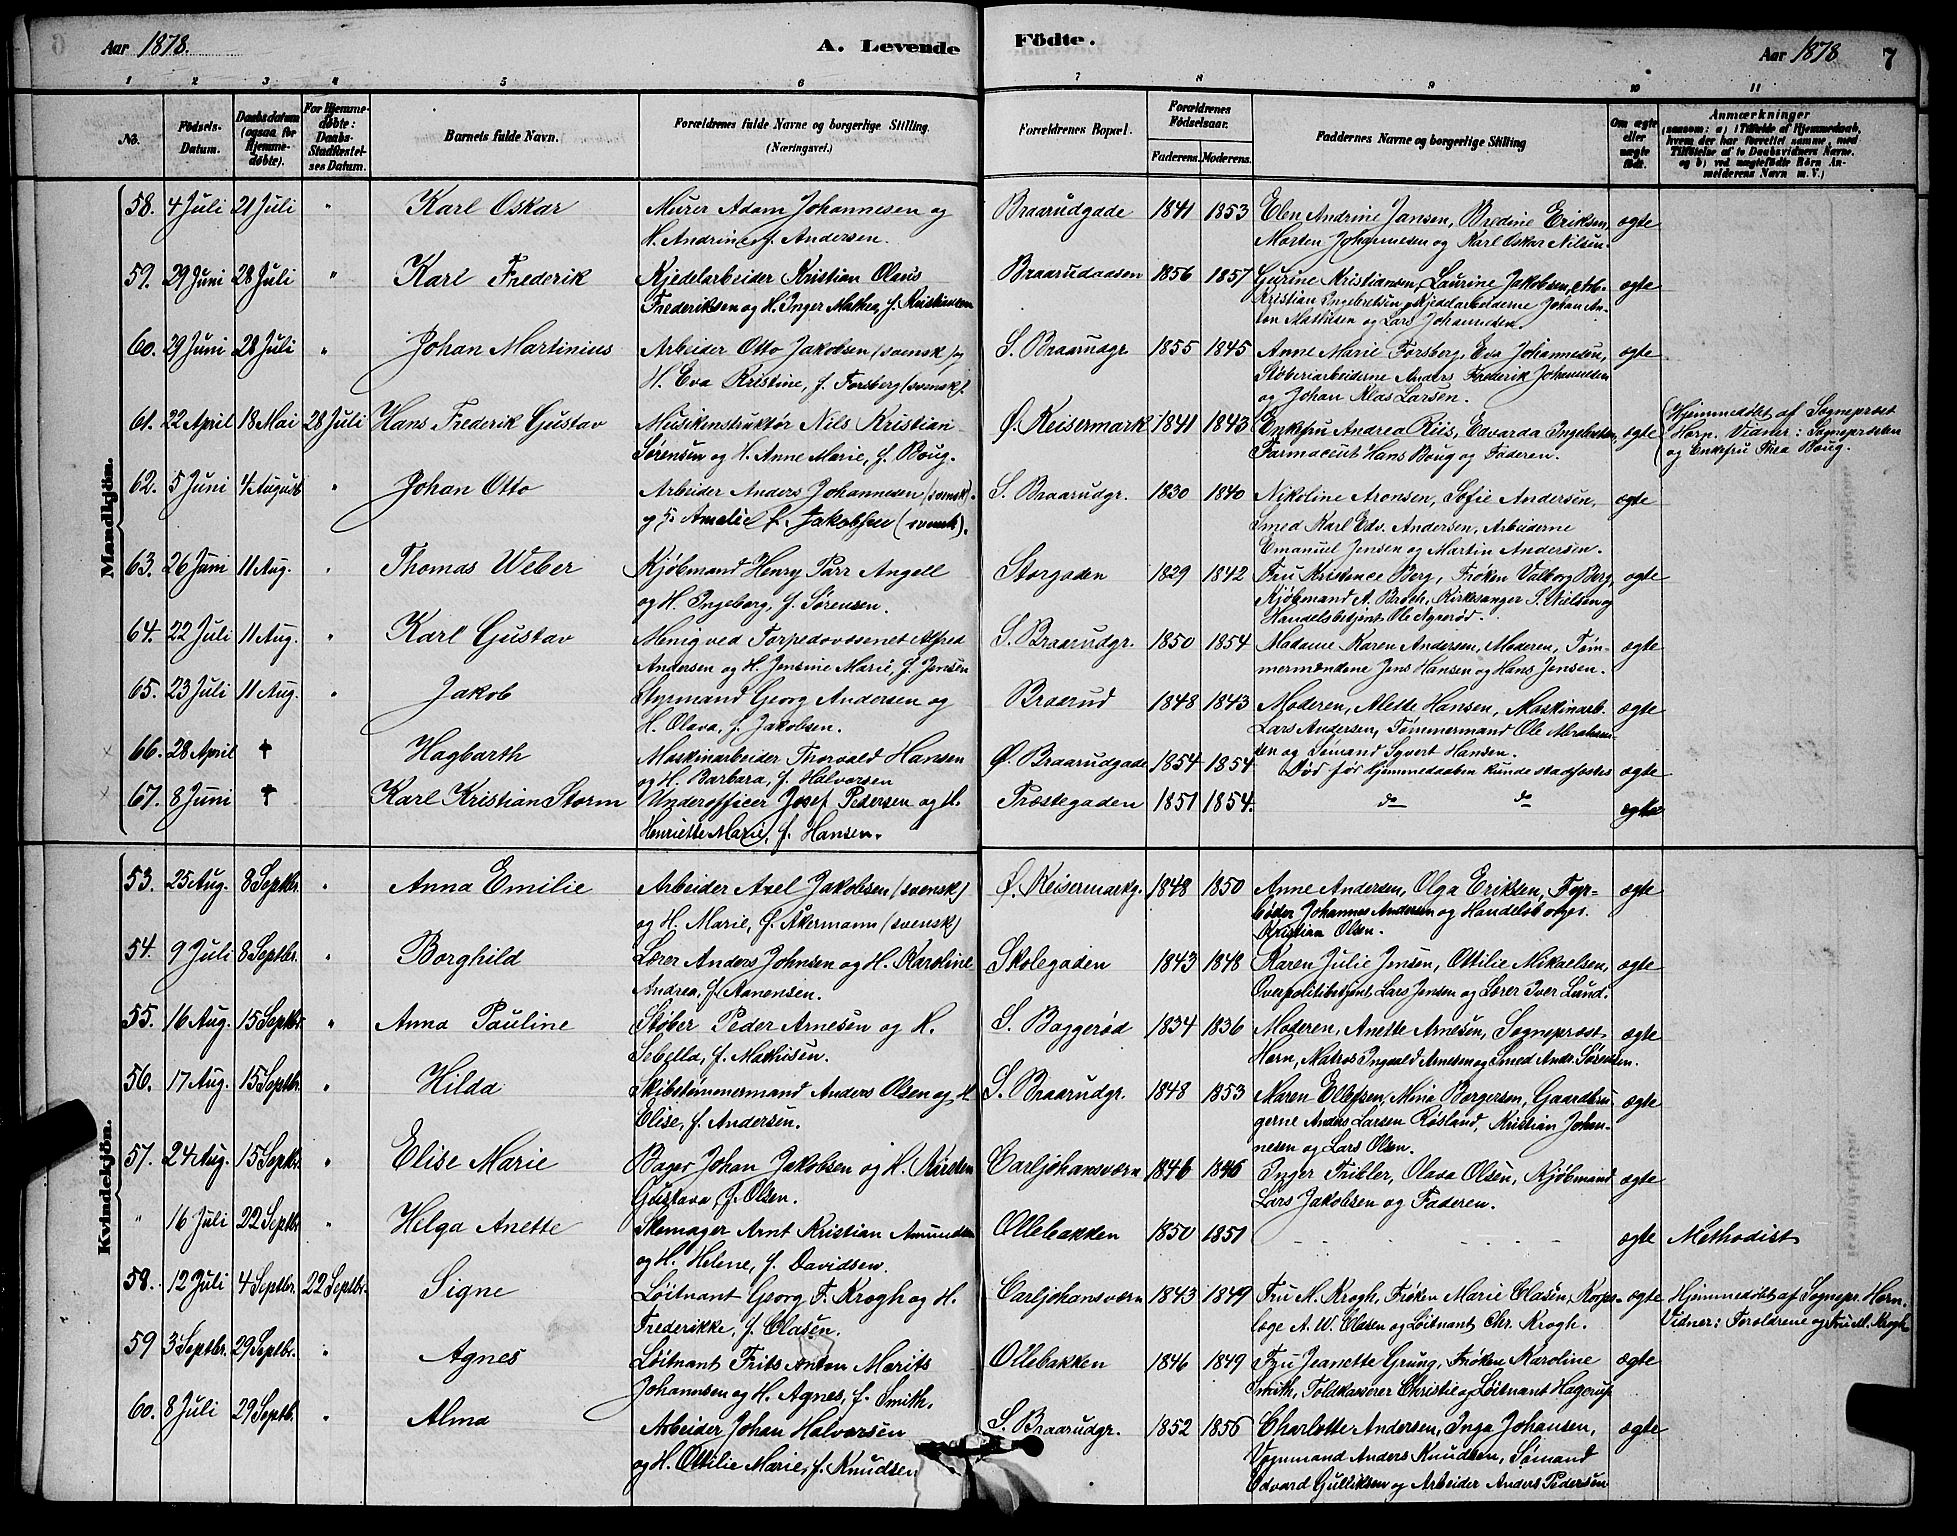 Aar 1878. A. Levende Födte. Aar 1878 7
1 2 3 4 5 6 7 8 9 10 11
No. Födsels-Datum. Daabsdatum (ogsaa for Hjemmedöbte). For Hjemmedöbte: Daabs-Stadfæstelses Datum. Barnets fulde Navn. Forældrenes fulde Navne og borgerlige Stilling. (Næringsvei.) Forældrenes Bopæl. Forældrenes Födselsaar. Faderens. Moderens. Faddernes Navne og borgerlige Stilling Om ægte eller uægte födt. Anmærkninger
Mandkjön.
58. 4 Juli 21 Juli " Karl Oskar Murer Adam Johannesen og Braarudgade 1841 1853 Elen Andrine Jansen, Bredine Eriksen, ægte
H. Andrine f. Andersen. Morten Johannesen og Karl Oskar Nilsen.
59. 29 Juni 28 Juli " Karl Frederik Kjedelarbeider Kristian Olaus Braarudaasen 1856 1857 Gurine Kristiansen, Laurine Jakobsen, Arb. ægte
Frederiksen og H. Inger Mathea, f. Kristiansen Kristian Ingebretsen, Kjedelarbeiderne Johan An-
ton Mathisen og Lars Johannesen.
60. 29 Juni 28 Juli " Johan Martinius Arbeider Otto Jakobsen (svensk) og S. Braarudgr. 1855 1845 Anne Marie Forsberg, Eva Johannesen, ægte
H. Eva Kristine, f. Forsberg (svensk). Støberiarbeiderne Anders Frederik Johannesen
og Johan Klas Larsen.
61. 22 April 18 Mai 28 Juli Hans Frederik Gustav Musikinstruktør Nils Kristian Ø. Keisermark 1841 1843 Enkefru Andrea Riis, Edvarda Ingebretsen, ægte Hjemmedøbt af Sogneprest
Sørensen og H. Anne Marie, f. Boug. Farmaceut Hans Boug og Faderen. Horn. Vidner: Sognepresten
og Enkefru Thea Boug.
62. 5 Juni 4 August " Johan Otto Arbeider Anders Johannesen (svensk). S. Braarudgr. 1830 1840 Nikoline Aronsen, Sofie Andersen, ægte
og H. Amelie f. Jakobsen (svensk). Smed Karl Eds. Andersen, Arbeiderne
Emanuel Jensen og Martin Andersen.
63. 26 Juni 11 Aug. " Thomas Weber Kjøbmand Henry Parr Angell Storgaden 1829 1842 Fru Kristence Berg, Frøken Valborg Berg, ægte
og H. Ingeborg, f. Sørensen. Kjøbmand A. Broch, Kirkesanger P. Nielsen og
Handelsbetjent Ole Agerød.
64. 22 Juli 11 Aug. " Karl Gustav Menig ved Torpedovæsenet Alfred S. Braarudgr. 1850 1854 Madame Karen Andersen, Moderen, Tøm- ægte
Andersen og H. Jensine Marie, f. Jensen mermændene Jens Hansen og Hans Jensen.
65. 23 Juli 11 Aug. " Jakob Styrmand Georg Andersen og Braarud 1848 1843 Moderen, Alette Hansen, Maskinarb. ægte
H. Olava, f. Jakobsen. Lars Andersen, Tømmermand Ole Abraham-
sen og Sømand Syvert Hansen.
66. 28 April † Hagbarth Maskinarbeider Thorvald Hansen Ø. Braarudgade 1854 1854 Død før hjemmedaaben kunde stadfæstes ægte
og H. Barbara, f. Halvorsen
67. 8 Juni † Karl Kristian Storm Underofficer Josef Pedersen og H. Præstegaden 1851 1854. do do ægte
Henriette Marie, f. Hansen.
Kvindekjön.
53. 25 Aug. 8 Septbr. " Anna Emilie Arbeider Axel Jakobsen (svensk) Ø. Keisermarkg. 1848 1850 Anne Andersen, Olga Eriksen, Fyr- ægte
og H. Marie, f. Åkermann (svensk) bøder Johannes Andersen og Handelsbetjent
Kristian Olsen.
54. 9 Juli 8 Septbr. " Borghild Lærer Anders Johnsen og H. Karoline Skolegaden 1843 1848 Karen Julie Jensen, Ottilie Mikaelsen, ægte
Andrea, f. Aanensen. Overpolitibetjent Lars Jensen og Lærer Iver Lund.
55. 16 Aug. 15 Septbr. " Anna Pauline Støber Peder Arnesen og H. S. Baggerød 1834 1836 Moderen, Anette Arnesen, Sogneprest ægte
Sebella, f. Mathisen. Horn, Matros Ingvald Arnesen og Smed Andr. Sørensen.
56. 17 Aug. 15 Septbr. " Hilda Skibstømmermand Anders Olsen og H. S. Braarudgr. 1848 1853 Maren Ellefsen, Mina Borgersen, Gaardbru- ægte
Elise, f. Andersen. gerne Anders Larsen Røsland, Kristian Johan-
nesen og Lars Olsen.
57. 24 Aug. 15 Septbr. " Elise Marie Bager Johan Jakobsen og H. Kirsten Carljohansværn 1846 1846 Inger Tribler, Olava Olsen, Kjøbmand ægte
Gustava, f. Olsen. Lars Jakobsen og Faderen.
" 16 Juli 22 Septbr. " Helga Anette Skomager Arnt Kristian Amundsen Ollebakken 1850 1851 ægte Methodist
og H. Helene, f. Davidsen.
58. 12 Juli 4 Septbr. 22 Septbr. Signe Løitnant Georg F. Krogh og H. Carljohansværn 1843 1849 Fru M. Krogh, Frøken Marie Olasen, Korps- ægte Hjemmedøbt af Sognepr. Horn.
Frederikke, f. Olasen. læge A. W. Olasen og Løitnant Chr. Krogh. Vidner: Forældrene og Fru M. Krogh
59 3 Septbr. 29 Septbr. " Agnes Løitnant Frits Anton Morits Ollebakken 1846 1849 Fru Jeanette Grung, Frøken Karoline ægte
Johannsen og H. Agnes, f. Smith. Smith, Toldkasserer Christie og Løitnant Hagerup
60. 8 Juli 29 Septb. " Alma Arbeider Johan Halvorsen S. Braarudgr. 1852 1856 Charlotte Andersen, Inga Johansen, ægte
og H. Ottilie Marie, f. Knudsen Vognmand Anders Knudsen, Sømand
Edvard Gulliksen og Arbeider Anders Pedersen